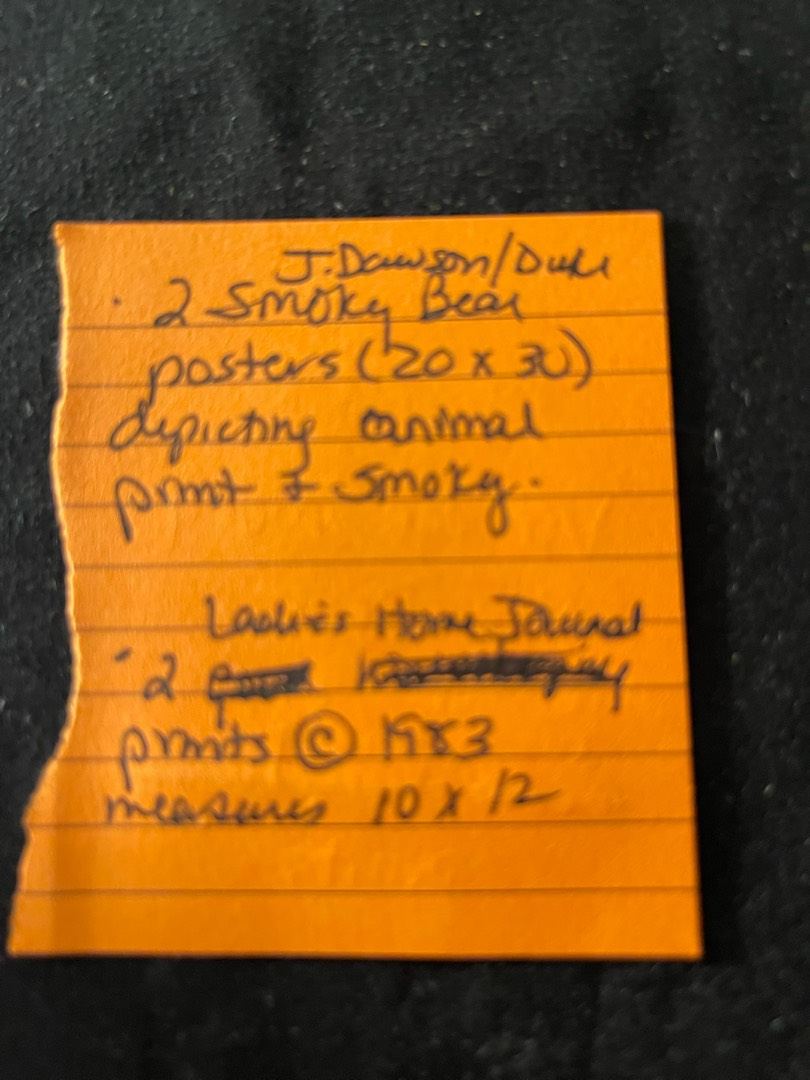 J. Dawson/Duke
· 2 Smoky Bear
posters (20 x 30)
depicting animal
print + Smoky.
Ladies Home Journal
· 2
prints © 1983
measures 10 x 12